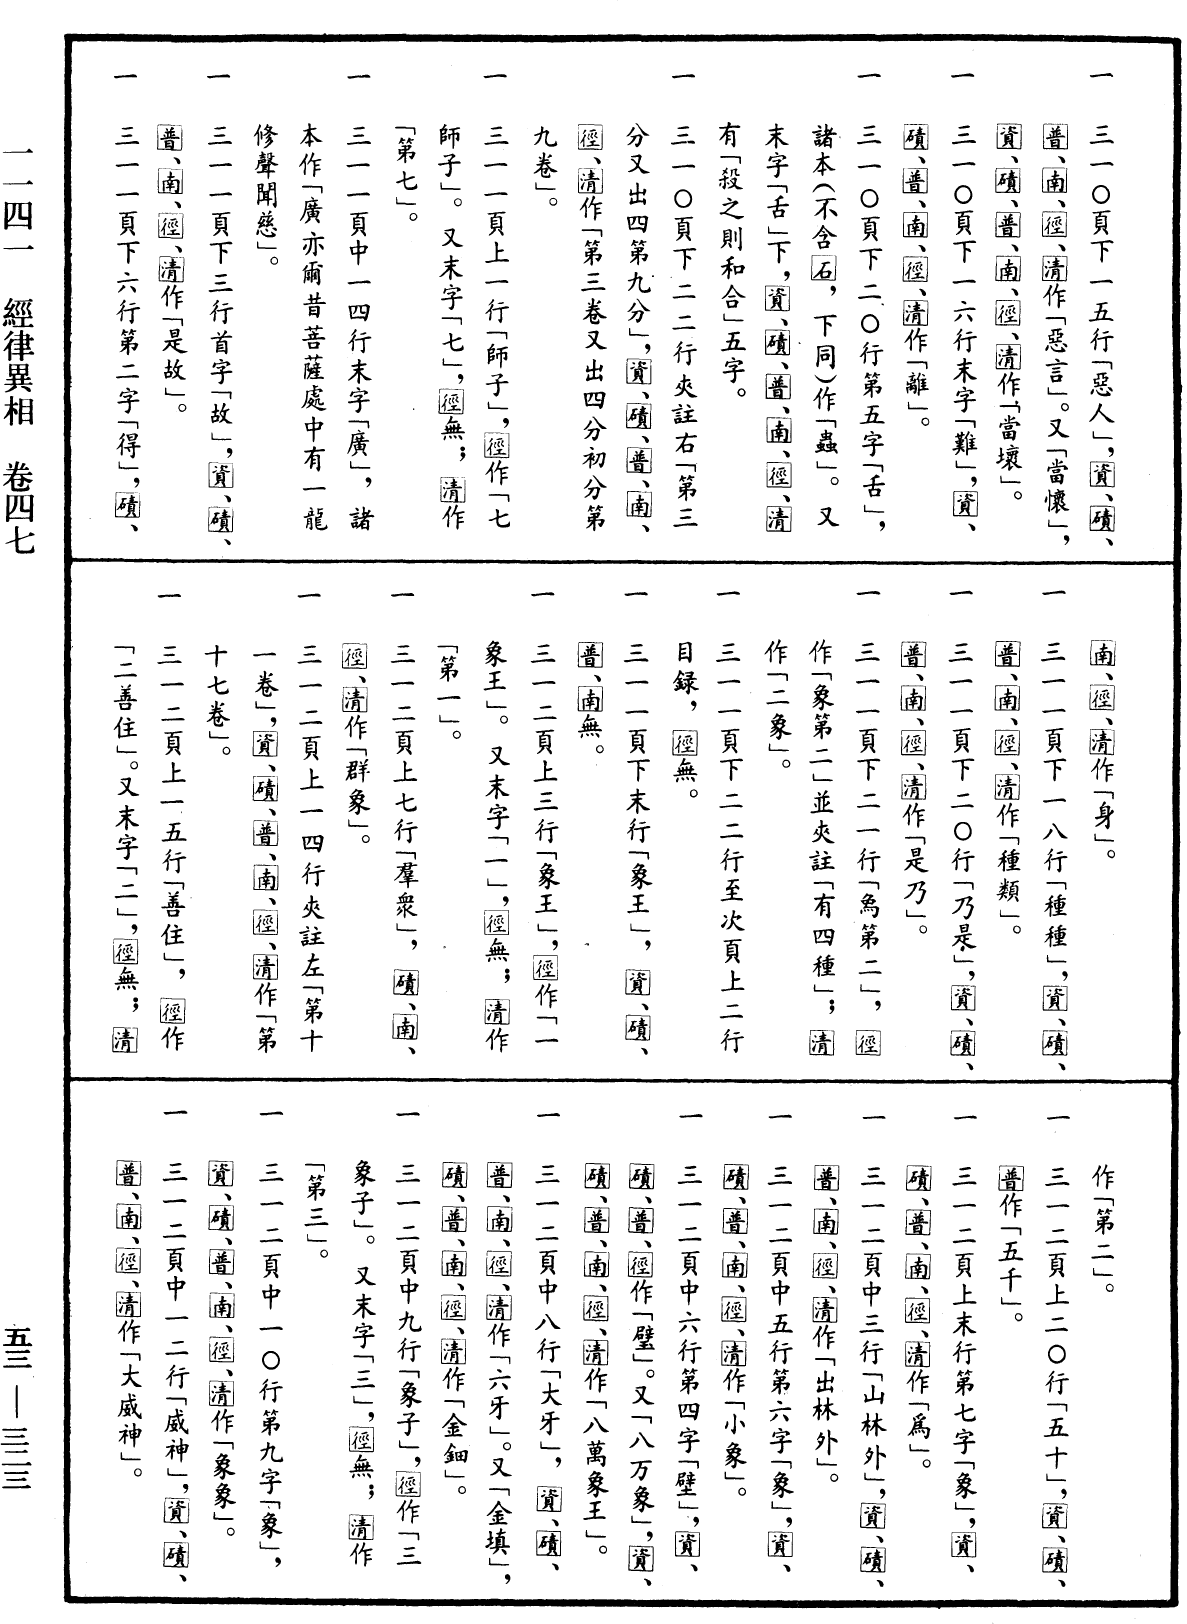 一 三一〇頁下一五行「惡人」，資、磧、
普、南、徑、清作「惡言」。又「當懷」，
資、磧、普、南、徑、清作「當壞」。
一 三一〇頁下一六行末字「難」，資、
磧、普、南、徑、清作「離」。
一 三一〇頁下二〇行第五字「舌」，
諸本（不含石，下同）作「蟲」。又
末字「舌」下，資、磧、普、南、徑、清
有「殺之則和合」五字。
一 三一〇頁下二二行夾註右「第三
分又出四第九分」，資、磧、普、南、
徑、清作「第三卷又出四分初分第
九卷」。
一 三一一頁上一行「師子」，徑作「七
師子」。又末字「七」，徑無；清作
「第七」。
一 三一一頁中一四行末字「廣」，諸
本作「廣亦爾昔菩薩處中有一龍
修聲聞慈」。
一 三一一頁下三行首字「故」，資、磧、
普、南、徑、清作「是故」。
一 三一一頁下六行第二字「得」，磧、
南、徑、清作「身」。
一 三一一頁下一八行「種種」，資、磧、
普、南、徑、清作「種類」。
一 三一一頁下二〇行「乃是」，資、磧、
普、南、徑、清作「是乃」。
一 三一一頁下二一行「爲第二」，徑
作「象第二」並夾註「有四種」；清
作「二象」。
一 三一一頁下二二行至次頁上二行
目録，徑無。
一 三一一頁下末行「象王」，資、磧、
普、南無。
一 三一二頁上三行「象王」，徑作「一
象王」。又末字「一」，徑無；清作
「第一」。
一 三一二頁上七行「羣衆」，磧、南、
徑、清作「群象」。
一 三一二頁上一四行夾註左「第十
一卷」，資、磧、普、南、徑、清作「第
十七卷」。
一 三一二頁上一五行「善住」，徑作
「二善住」。又末字「二」，徑無；清
作「第二」。
一 三一二頁上二〇行「五十」，資、磧、
普作「五千」。
一 三一二頁上末行第七字「象」，資、
磧、普、南、徑、清作「爲」。
一 三一二頁中三行「山林外」，資、磧、
普、南、徑、清作「出林外」。
一 三一二頁中五行第六字「象」，資、
磧、普、南、徑、清作「小象」。
一 三一二頁中六行第四字「壁」，資、
磧、普、徑作「璧」。又「八万象」，資、
磧、普、南、徑、清作「八萬象王」。
一 三一二頁中八行「大牙」，資、磧、
普、南、徑、清作「六牙」。又「金填」，
磧、普、南、徑、清作「金鈿」。
一 三一二頁中九行「象子」，徑作「三
象子」。又末字「三」，徑無；清作
「第三」。
一 三一二頁中一〇行第九字「象」，
資、磧、普、南、徑、清作「象象」。
一 三一二頁中一二行「威神」，資、磧、
普、南、徑、清作「大威神」。
一一四一 經律異相 卷四七
五三—三二三